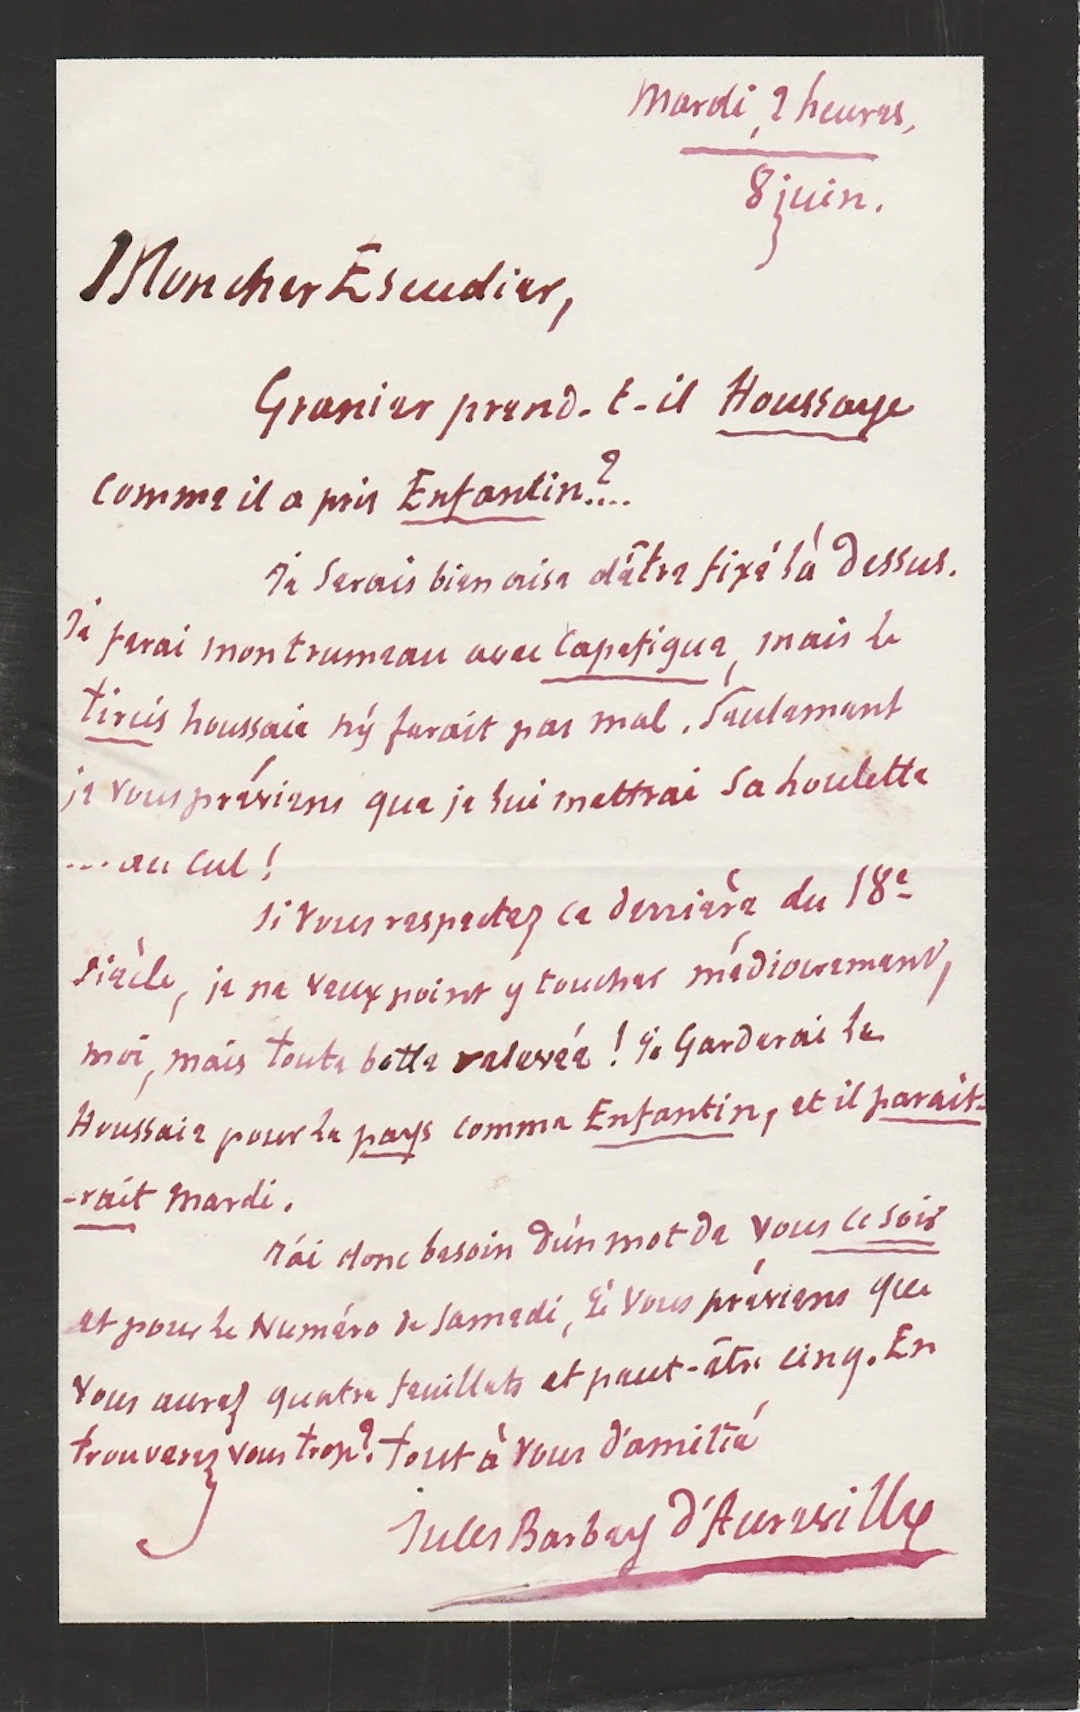 Mardi, 2 heures,
8 juin.
Mon cher Escudier,
Granier prend-t-il Houssaye
comme il a pris Enfantin?....
Je serais bien aise d'être fixé là dessus.
Je ferai mon trumeau avec Capefigue, mais le
tircis houssaie n'y ferait pas mal. Seulement
je vous préviens que je lui mettrai sa houlette
... au cul !
Si vous respectez ce derrière du 18e
siècle, je ne veux point y toucher médiocrement,
moi, mais toute botte relevée ! Je Garderai le
Houssaie pour le pays comme Enfantin, et il parait-
-rait Mardi.
J'ai donc besoin d'un mot de vous ce soir
et pour le Numéro de Samedi, Je vous préviens que
vous aurez quatre feuillets et peut-être cinq. En
trouverez vous trop? tout à vous d'amitié
Jules Barbey d'Aurevilly